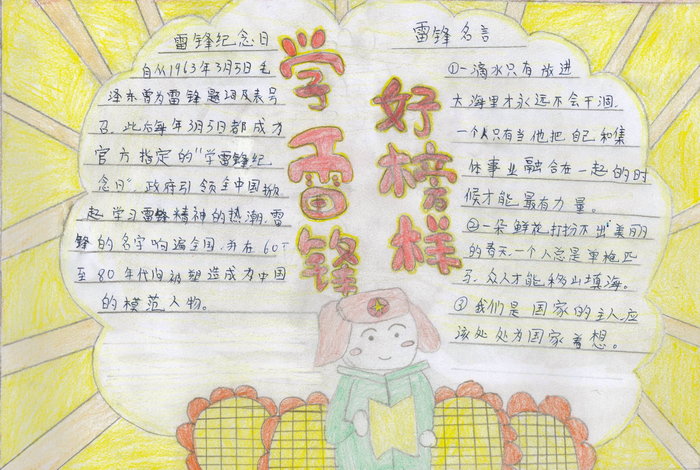 雷锋纪念日
自从1963年3月5日毛
泽东曾为雷锋题词发表号
召,此后每年3月5日都成为
官方指定的"学雷锋纪
念日",政府引领全中国掀
起学习雷锋精神的热潮,雷
锋的名字响遍全国,并在60
至80年代间被塑造成为中国
的模范人物。
学雷锋
好榜样
雷锋名言
①一滴水只有放进
大海里才永远不会干涸,
一个人只有当他把自己和集
体事业融合在一起的时
候才能最有力量。
②一朵鲜花打扮不出美丽
的春天,一个人总是单枪匹
马,众人才能移山填海。
③我们是国家的主人,应
该处处为国家着想。